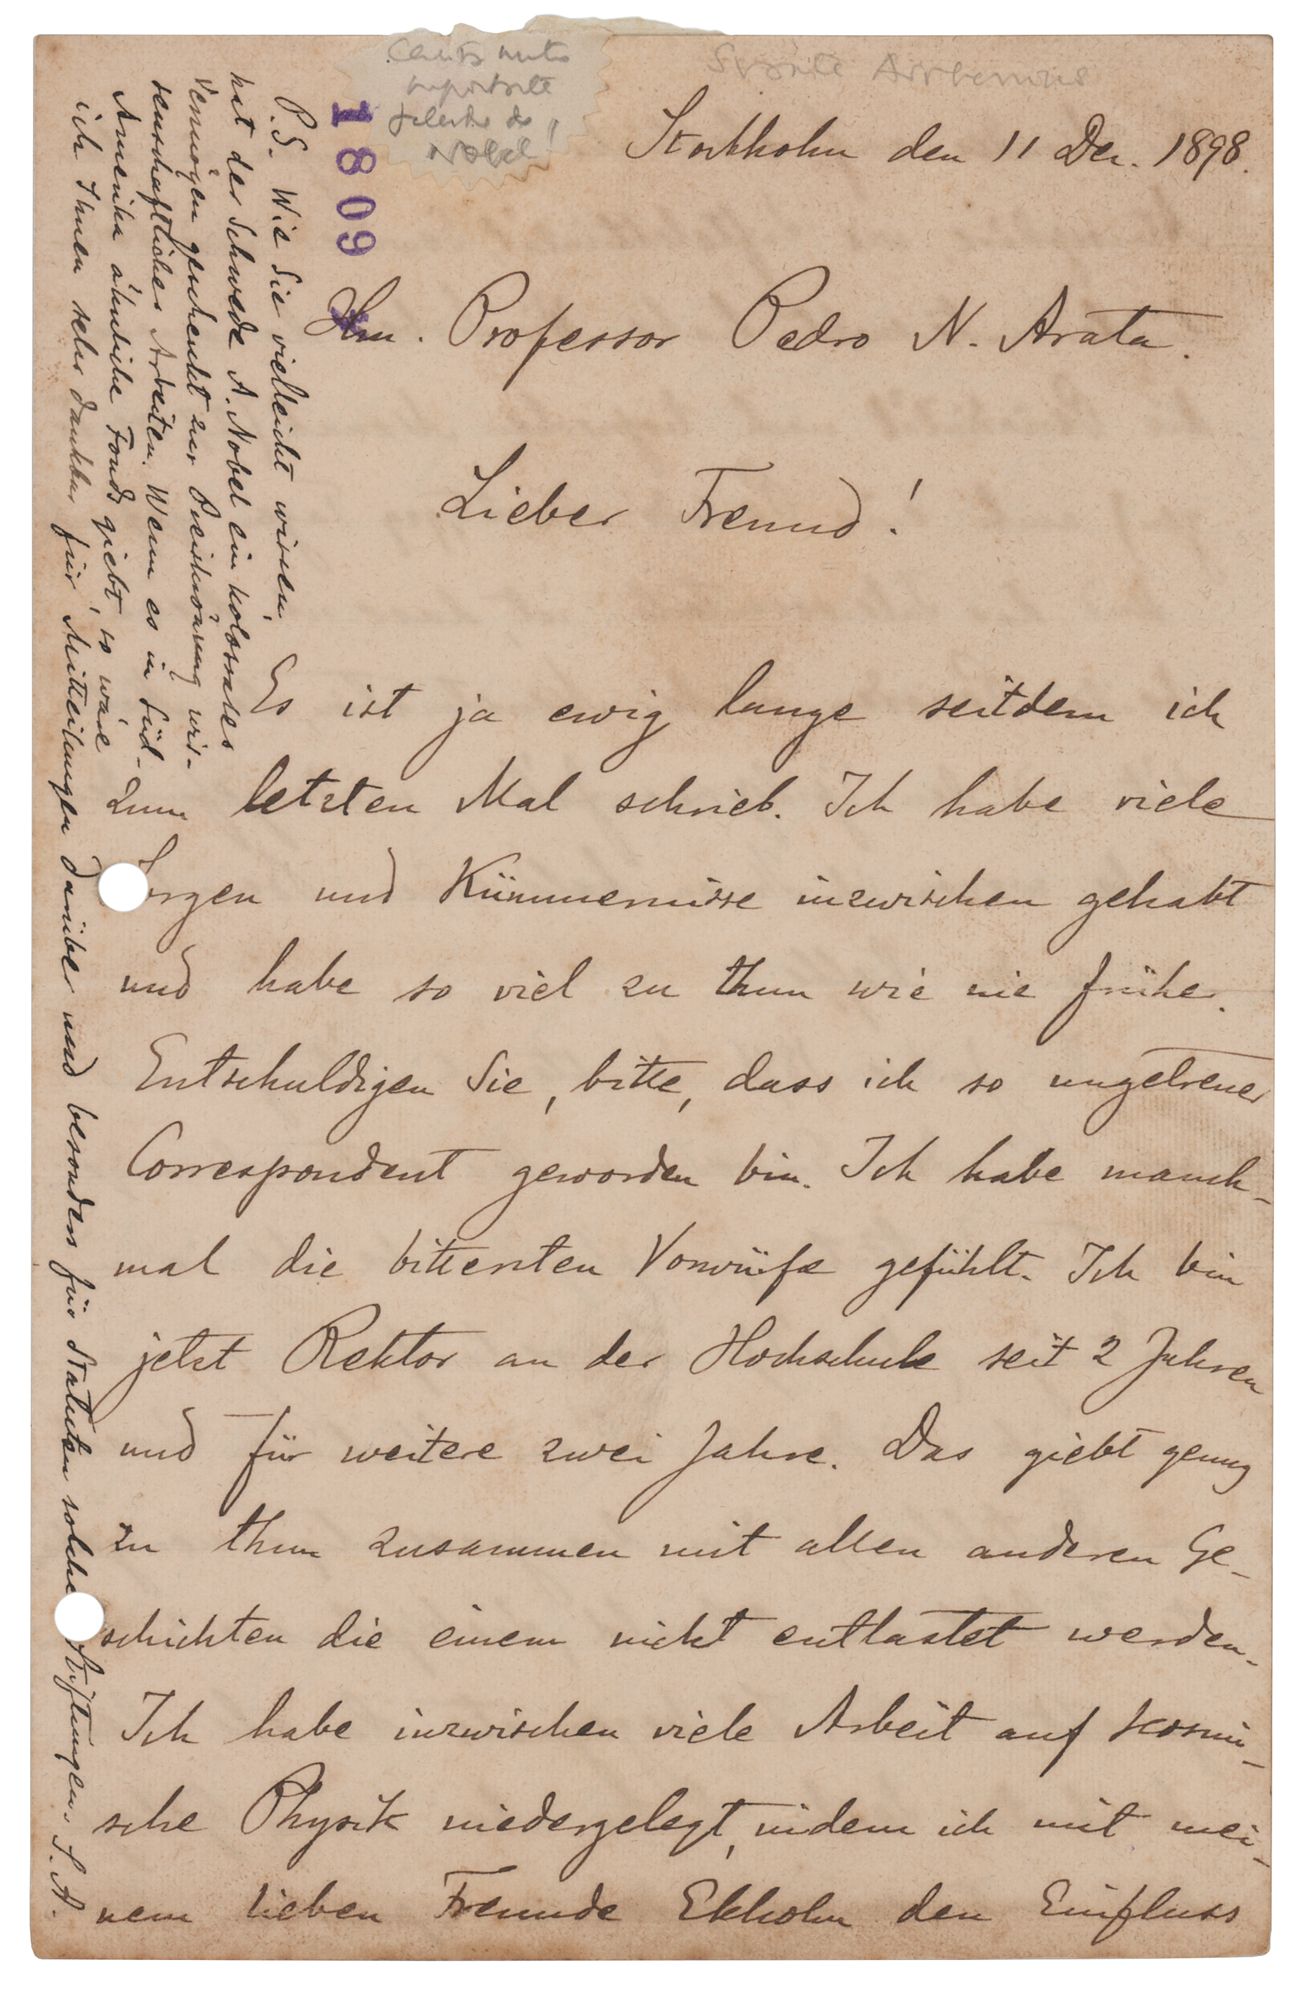 Svante Arrhenius
Carta muito
importante
Nobel!
1809
Stockholm den 11 Dec. 1898.
Hrn. Professor Pedro N. Arata.
Lieber Freund!
Es ist ja ewig lange seitdem ich
zum letzten Mal schrieb. Ich habe viele
Sorgen und Kümmernisse inzwischen gehabt
und habe so viel zu thun wie nie früher.
Entschuldigen Sie, bitte, dass ich so ungetreuer
Correspondent geworden bin. Ich habe manch-
mal die bittersten Vorwürfe gefühlt. Ich bin
jetzt Rektor an der Hochschule seit 2 Jahren
und für weitere zwei Jahre. Das giebt genug
zu thun zusammen mit allen anderen Ge-
schichten die einem nicht entlastet werden.
Ich habe inzwischen viele Arbeit auf kosmi-
sche Physik niedergelegt, indem ich mit mei-
nem lieben Freunde Ekholm den Einfluss
P.S. Wie Sie vielleicht wissen,
hat der Schwede A. Nobel ein kolossales
Vermögen geschenkt zur Preiskrönung wis-
senschaftlicher Arbeiten. Wenn es in Süd-
Amerika ähnliche Fonds giebt, so wäre
ich Ihnen sehr dankbar für Mitteilungen darüber und besonders für Statuten solcher Stiftungen. S. A.